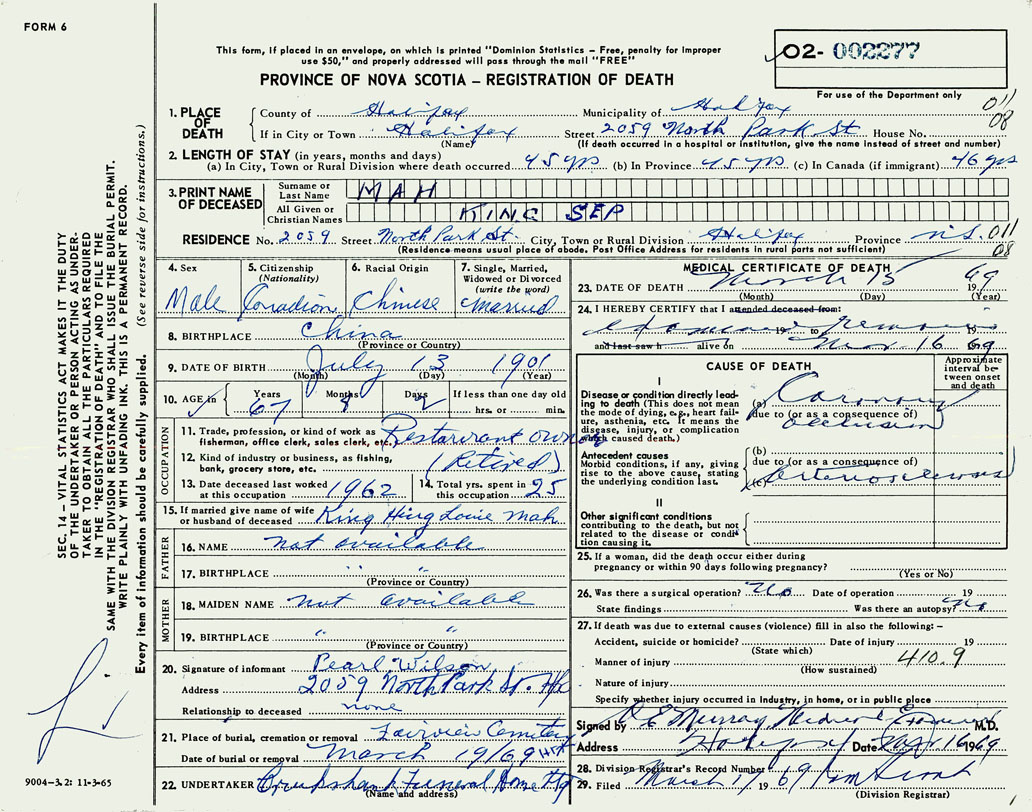 FORM 6
This form, if placed in an envelope, on which is printed "Dominion Statistics – Free, penalty for improper
use $50," and properly addressed will pass through the mail "FREE"
PROVINCE OF NOVA SCOTIA – REGISTRATION OF DEATH
02- 002277
For use of the Department only
011
08
1. PLACE OF DEATH
County of Halifax Municipality of Halifax
If in City or Town Halifax Street 2059 North Park St House No.
(Name) (If death occurred in a hospital or institution, give the name instead of street and number)
2. LENGTH OF STAY (in years, months and days)
(a) In City, Town or Rural Division where death occurred 45 yrs (b) In Province 45 yrs (c) In Canada (if immigrant) 46 yrs
3. PRINT NAME OF DECEASED
Surname or Last Name MAH
All Given or Christian Names KING SEP
RESIDENCE No. 2059 Street North Park St. City, Town or Rural Division Halifax Province N.S. 011
(Residence means usual place of abode. Post Office Address for residents in rural parts not sufficient) 08
4. Sex Male
5. Citizenship (Nationality) Canadian
6. Racial Origin Chinese
7. Single, Married, Widowed or Divorced (write the word) Married
8. BIRTHPLACE China
(Province or Country)
9. DATE OF BIRTH July 13 1901
(Month) (Day) (Year)
10. AGE in Years 67 Months 8 Days 2 If less than one day old
hrs. or min.
OCCUPATION
11. Trade, profession, or kind of work as
fisherman, office clerk, sales clerk, etc. Restaurant owner
12. Kind of industry or business, as fishing,
bank, grocery store, etc. (Retired)
13. Date deceased last worked
at this occupation 1962
14. Total yrs. spent in
this occupation 25
15. If married give name of wife
or husband of deceased King Hing Louie Mah
FATHER
16. NAME not available
17. BIRTHPLACE " "
(Province or Country)
MOTHER
18. MAIDEN NAME not available
19. BIRTHPLACE " "
(Province or Country)
20. Signature of informant Pearl Wilson
Address 2059 North Park St. Hfx
Relationship to deceased none
21. Place of burial, cremation or removal Fairview Cemetery
Date of burial or removal March 19/69 Hfx
22. UNDERTAKER Cruikshank Funeral Home Hfx
(Name and address)
MEDICAL CERTIFICATE OF DEATH
23. DATE OF DEATH March 15 1969
(Month) (Day) (Year)
24. I HEREBY CERTIFY that I attended deceased from:
examined 19 to remains 19
and last saw h alive on Mar. 16 1969
CAUSE OF DEATH
Approximate interval between onset and death
I
Disease or condition directly leading to death (This does not mean
the mode of dying, e.g., heart failure, asthenia, etc. It means the
disease, injury, or complication
which caused death.)
(a) Coronary
due to (or as a consequence of)
occlusion
Antecedent causes
Morbid conditions, if any, giving
rise to the above cause, stating
the underlying condition last.
(b)
due to (or as a consequence of)
(c) Arteriosclerosis
II
Other significant conditions
contributing to the death, but not
related to the disease or condition causing it.
25. If a woman, did the death occur either during
pregnancy or within 90 days following pregnancy?
(Yes or No)
26. Was there a surgical operation? No Date of operation 19
State findings Was there an autopsy? No
27. If death was due to external causes (violence) fill in also the following: –
Accident, suicide or homicide? Date of injury 19
(State which)
Manner of injury 410.9
(How sustained)
Nature of injury
Specify whether injury occurred in industry, in home, or in public place
Signed by Murray Medical Examiner M.D.
Address Halifax Date Mar 16 1969
28. Division Registrar's Record Number
29. Filed March 19
(Division Registrar)
SEC. 14 – VITAL STATISTICS ACT MAKES IT THE DUTY
OF THE UNDERTAKER OR PERSON ACTING AS UNDERTAKER TO OBTAIN ALL THE PARTICULARS REQUIRED
IN THE "REGISTRATION OF DEATH" AND TO FILE THE
SAME WITH THE DIVISION REGISTRAR WHO SHALL ISSUE THE BURIAL PERMIT.
WRITE PLAINLY WITH UNFADING INK. THIS IS A PERMANENT RECORD.
Every item of information should be carefully supplied. (See reverse side for instructions.)
9004-3.2: 11-3-65